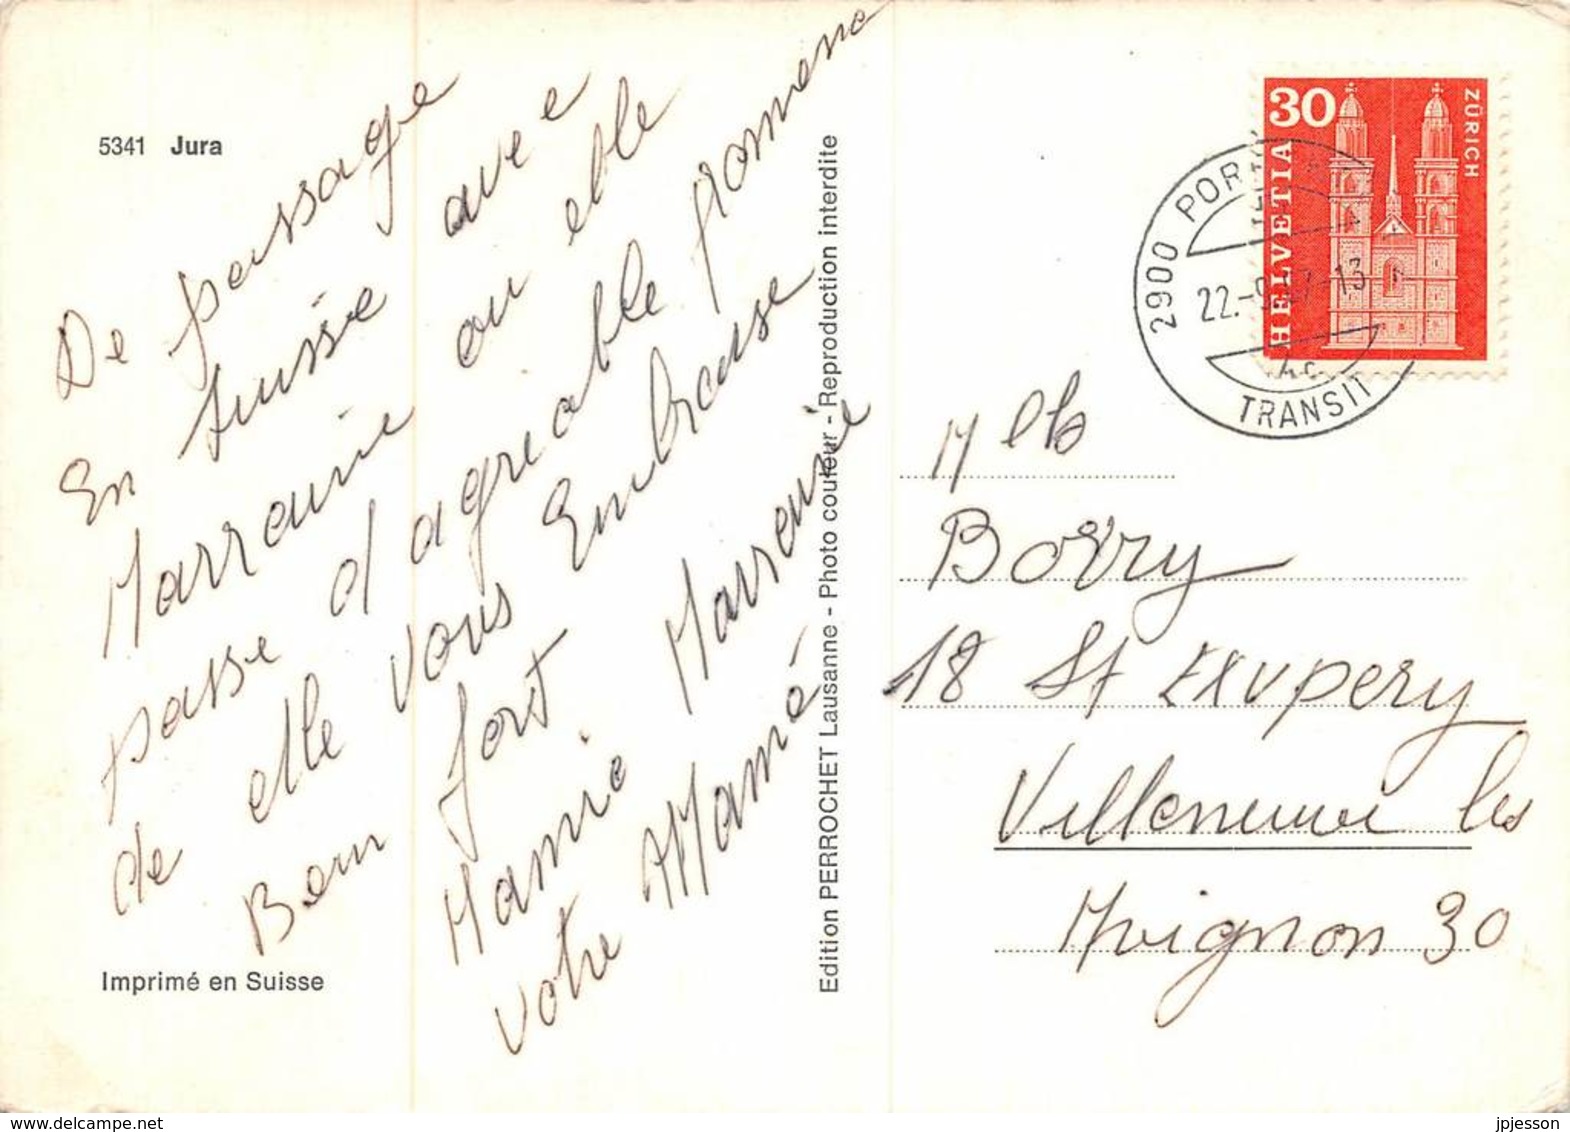 5341 Jura
De passage
En Suisse avec
Marraine on elle
passe d agreable promene
de elle vous Embrasse
Beau fort
Mamie Marraine
votre Mamé
Imprimé en Suisse
Edition PERROCHET Lausanne - Photo couleur - Reproduction interdite
30
HELVETIA
ZÜRICH
2900 POR
22.-9. 7-13
TRANSIT
Mlle
Borry
18 St Exupery
Villeneuve les
Avignon 30
www.delcampe.net
jpjesson